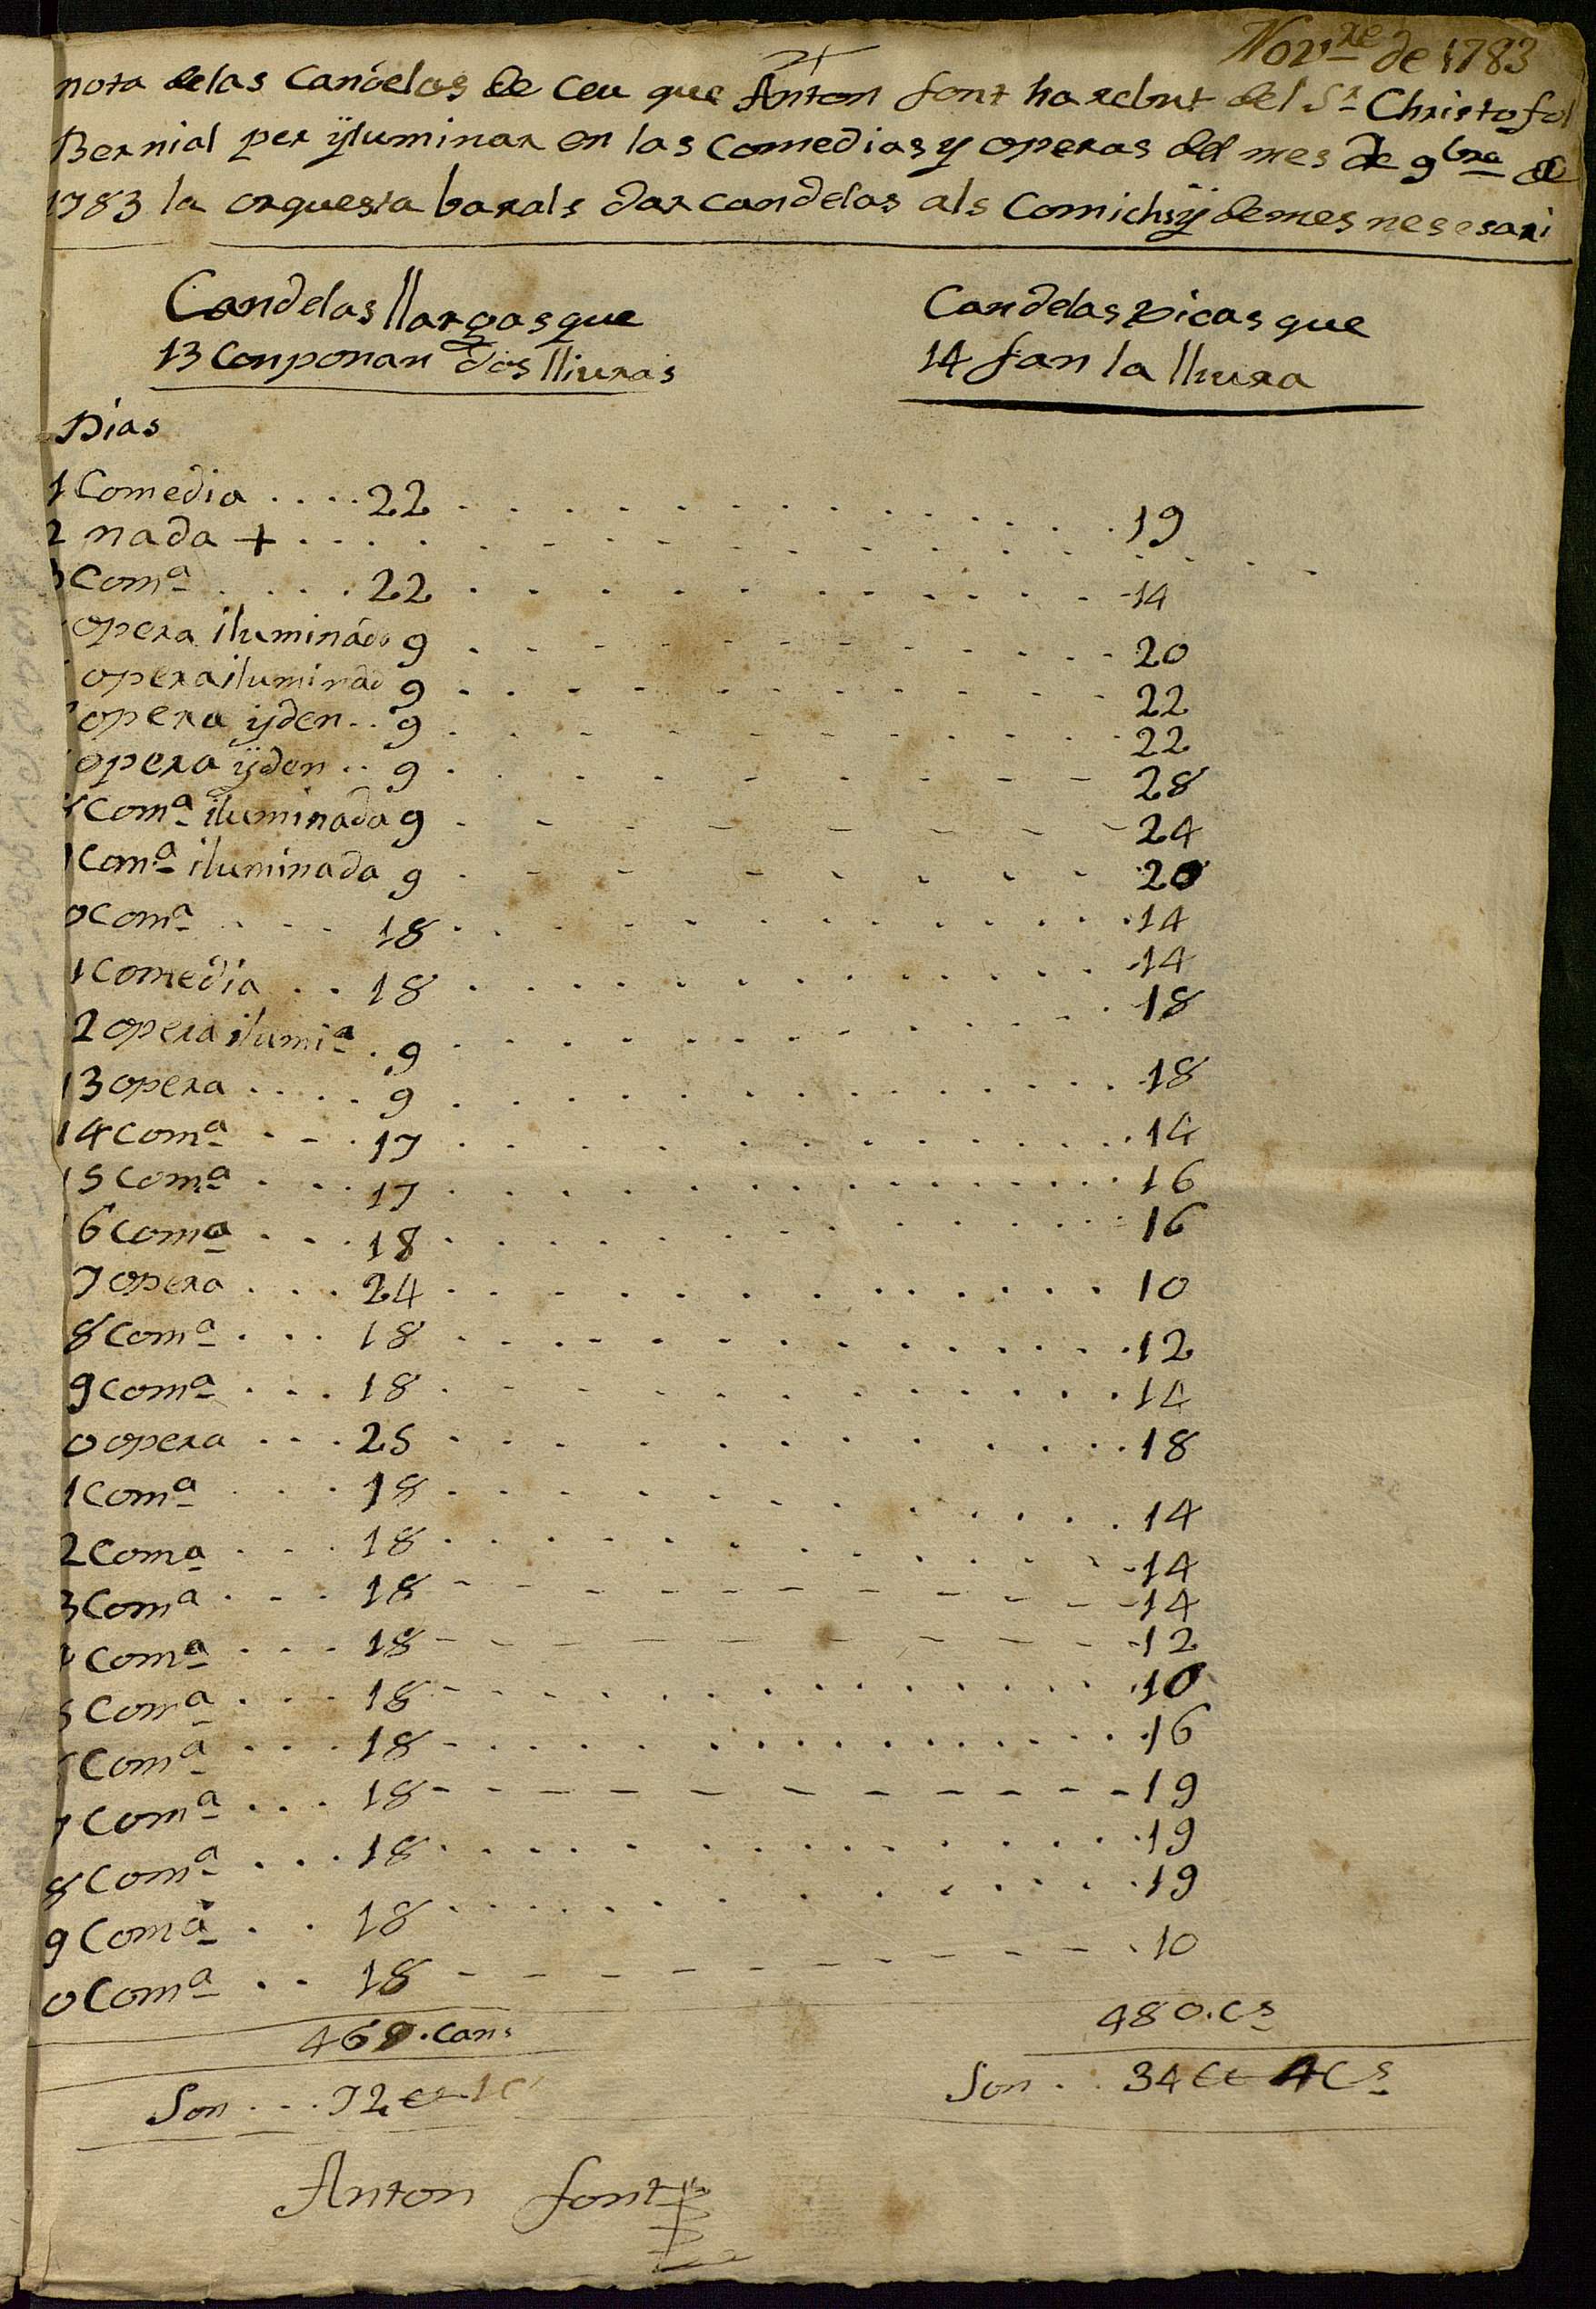 Nov.re de 1783
nota delas Candelas de Ceu que Anton font ha rebut del Sr Christofol
Bernial per ÿluminar en las Comedias y operas del mes de 9bra de
1783 la orquesta barals dar candelas als Comichs ÿ demes nesesari
Candelas llargas que
13 Conponan dos lliuras
Candelas xicas que
14 fan la lliura
Dias
1 Comedia .... 22 ........... 19
2 nada + ...........
3 Coma .... 22 ........... 14
opera iluminada 9 ........... 20
opera iluminad 9 ........... 22
opera ÿden .. 9 ........... 22
opera ÿden .. 9 ........... 28
8 Coma iluminada 9 ........... 24
Coma iluminada 9 ........... 20
0 Coma .... 18 ........... 14
1 Comedia .. 18 ........... 14
2 opera ilumia . 9 ........... 18
13 opera .... 9 ........... 18
14 Coma ... 17 ........... 14
15 Coma ... 17 ........... 16
6 Coma ... 18 ........... 16
7 opera ... 24 ........... 10
8 Coma ... 18 ........... 12
9 Coma ... 18 ........... 14
0 opera ... 25 ........... 18
1 Coma ... 18 ........... 14
2 Coma ... 18 ........... 14
3 Coma ... 18 ........... 14
4 Coma ... 18 ........... 12
5 Coma ... 18 ........... 10
6 Coma ... 18 ........... 16
7 Coma ... 18 ........... 19
8 Coma ... 18 ........... 19
9 Coma .. 18 ........... 19
0 Coma .. 18 ........... 10
469. Cans
480. Cs
Son ... 72 ll 1 C
Son .. 34 ll 4 Cs
Anton font